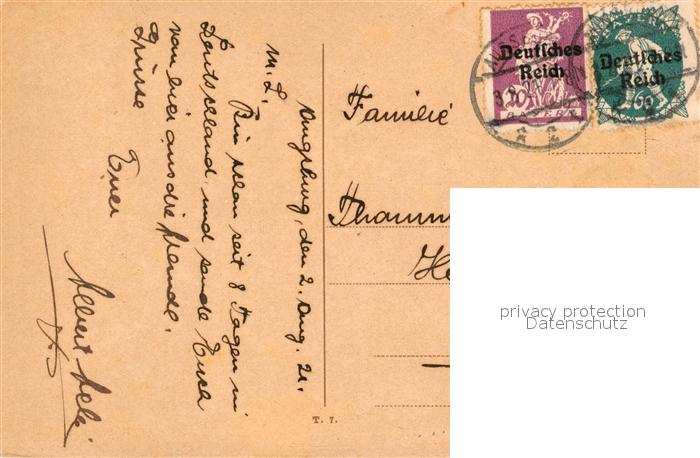 Augsburg, den 2. Aug. 21.
M. L.
Bin schon seit 8 Tagen in
Deutschland und sende Euch
von hier aus die
Grüsse
Euer
Albert
Familie
Deutsches
Reich
BAYERN
Deutsches
Reich
BAYERN
60
T. 7.
privacy protection
Datenschutz